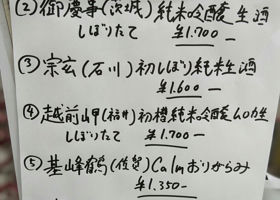 (2) 御慶事(茨城) 純米吟醸生酒
しぼりたて ¥1.700ー
③ 宗玄(石川) 初しぼり純米生酒
¥1.600ー
④ 越前岬(福井) 初槽純米吟醸ムロカ生
しぼりたて ¥1.700ー
⑤ 基峰鶴(佐賀) Calmおりがらみ
¥1.350-